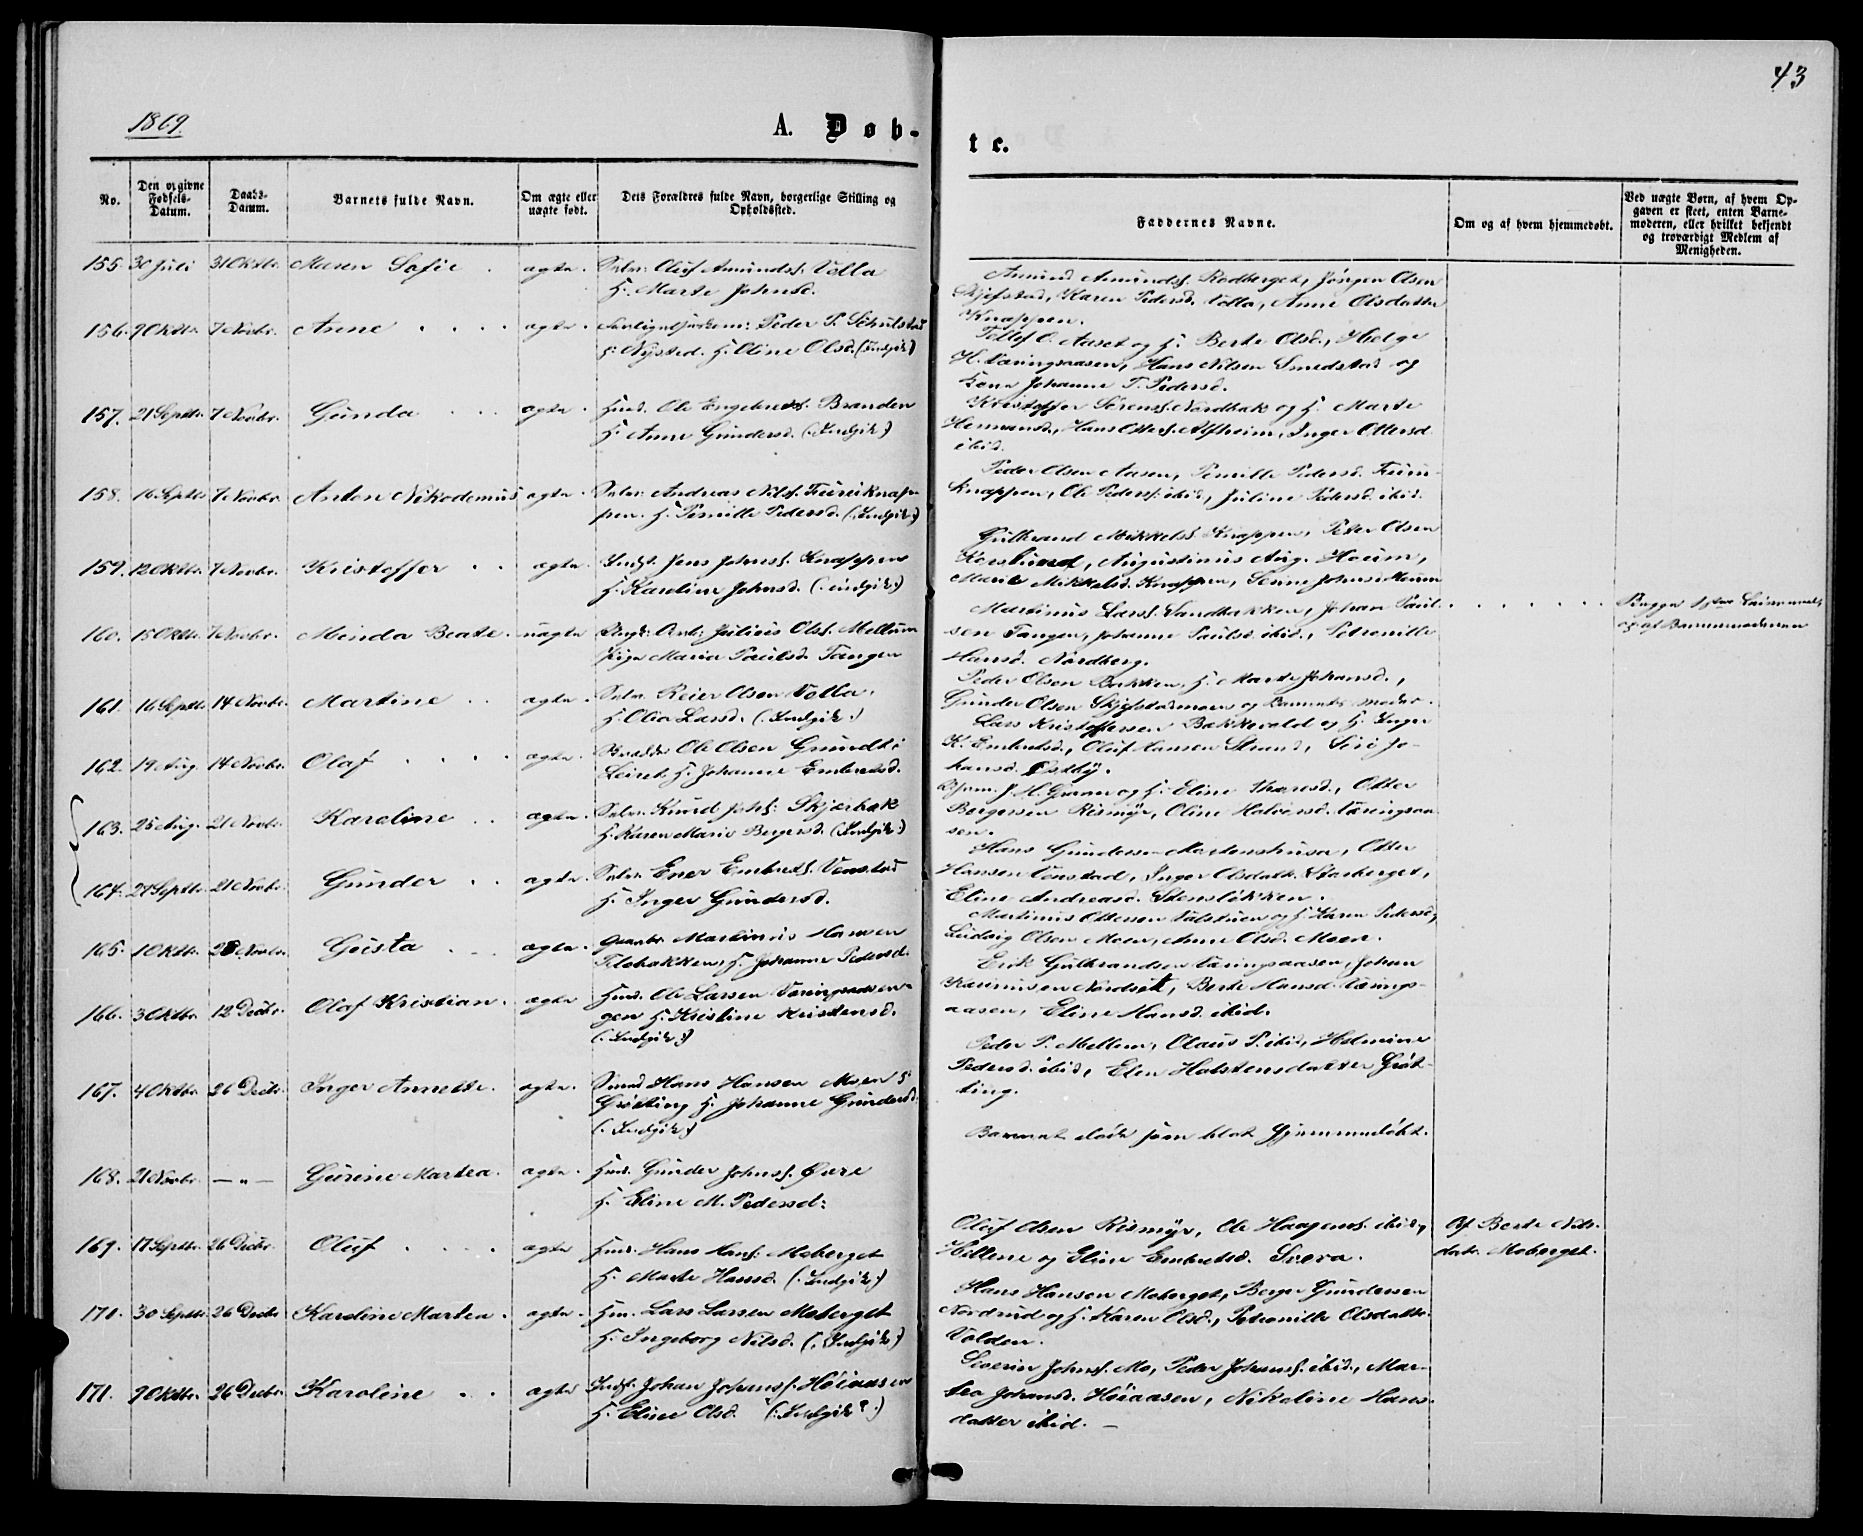 43
1869.
A. Døb-
te.
No.
Den opgivne Fødsels-Datum.
Daabs-Datum.
Barnets fulde Navn.
Om ægte eller uægte født.
Dets Forældres fulde Navn, borgerlige Stilling og Opholdssted.
Faddernes Navne.
Om og af hvem hjemmedøbt.
Ved uægte Børn, af hvem Opgaven er skeet, enten Barnemoderen, eller hvilket bekjendt og troværdigt Medlem af Menigheden.
155. 30 Juli 31 Oktbr. Maren Sofie . ægte. Selv. Oluf Amundss. Volla
H. Marte Johnsd.
Amund Amundss. Rødberget, Jørgen Olsen
Skjefstad, Karen Pedersd. Volla, Anne Olsdatter
Knappen.
156. 9 Oktbr. 7 Novbr. Anne . . . . ægte. Peder P. Schulstad
i Nysted. H. Oline Olsd. (Indgik.)
Tollef O. Aaset og H. Berte Olsd., Helge
H. Væringsaasen, Hans Nilsen Smedstad og
Kone Johanne P. Pedersd.
157. 21 Septbr. 7 Novbr. Gunda . . . ægte. Husm. Ole Engebretss. Branden
H. Anne Gundersd. (Indgik.)
Kristoffer Sørenss. Nordbak og H. Marte
Hermansd., Hans Otters. Alfheim, Inger Ottersd.
ibid.
158. 16 Septbr. 7 Novbr. Anton Nikodemus ægte. Selv. Andreas Nilss. Furuknap-
pen. H. Pernille Pedersd. (Indgik.)
Peder Olsen Aasen, Pernille Pedersd. Furu-
knappen, Ole Pederss. ibid., Juline Pedersd. ibid.
159. 12 Oktbr. 7 Novbr. Kristoffer . . ægte. Indst. Jens Johnss. Knappen
H. Karoline Johnsd. (Indgik.)
Gulbrand Mikkelss. Knappen, Peter Olsen
Korslund, Augustinus Aug. Houm,
Marie Mikkelsd. Knappen, Johnsd. Houm
160. 15 Oktbr. 7 Novbr. Minda Beate. uægte Ungk. Arb. Julius Olss. Mellum
Pige Maria Paulsd. Tangen
Martinus Larss. Sandbakken, Johan Paul-
sen Tangen, Johanne Paulsd. ibid., Petronille
Hansd. Nordberg.
Begge 1ste Leiermaal,
og af Barnemoderen
161. 16 Septbr. 14 Novbr. Martine . . ægte. Selv. Reier Olsen Volla.
H. Olia Larsd. (Indgik.)
Peder Olsen Bakken, H. Marte Johansd.,
Gunder Olsen Skjefstadmoen og Barnets moder.
162. 19 Aug. 14 Novbr. Olaf . . . . ægte. Ole Olsen Grundt i
Leiret. H. Johanne Embretsd.
Lars Kristoffersen Bakkevold og H. Inger
K. Embretsd., Oluf Hansen Strand, Siri Jo-
hansd. Østby.
163. 25 Aug. 21 Novbr. Karoline . . ægte. Selv. Knud Johs. Skjærbak
H. Karen Marie Bergersd. (Indgik.)
J. H. Gunn og H. Eline Thoresd., Otter
Bergersen Rismyr, Oline Halvorsd. Væringsaa-
sen.
164. 27 Septbr. 21 Novbr. Gunder . . ægte. Selv. Ener Embretss. Vonstad
H. Inger Gundersd.
Hans Gundersen Mortenshuset, Otter
Hansen Vonstad, Inger Olsdatter Skarberget,
Eline Andreasd. Stensløkken.
165. 1 Oktbr. 28 Novbr. Gusta . . . ægte. Martinus Hansen
Telebakken, H. Johanne Pedersd.
Martinus Ottersen og H. Karen Pedersd.,
Ludvig Olsen Moen, Anne Olsd. Moen.
166. 3 Oktbr. 12 Decbr. Olaf Kristian. ægte. Husm. Ole Larsen Væringsaasen-
gen H. Kristine Kristensd.
(Indgik.)
Erik Gulbrandsen Væringsaasen, Johan
Nordset, Berte Hansd. Værings-
aasen, Eline Hansd. ibid.
167. 4 Oktbr. 26 Decbr. Inger Annette. ægte. Smed Hans Hansen Moen i
Grøtting H. Johanne Gundersd.
(Indgik.)
Peder P. Mellem, Olaus P. ibid., Helmine
Pedersd. ibid., Elen Halstensdatter Grøt-
ting.
168. 21 Novbr. — „ — Gurine Martea. ægte. Husm. Gunder Johnss. Øvre
H. Eline M. Pedersd.
Barnet døde som blot Hjemmedøbt.
169. 17 Septbr. 26 Decbr. Oluf . . . . ægte Husm. Hans Hans. Moberget
H. Marte Hansd. (Indgik.)
Oluf Olsen Rismyr, Ole Haagenss. ibid.,
Hellene og Eline Embretsd. Svera.
Af Berte Nils-
datr. Moberget.
170. 30 Septbr. 26 Decbr. Karoline Martea. ægte. Husm. Lars Larsen Moberget
H. Ingeborg Nilsd. (Indgik.)
Hans Hansen Moberget, Berger Gundersen
Nordrud og H. Karen Olsd., Petronille Olsdatter
Volden.
171. 9 Oktbr. 26 Decbr. Karoline . . ægte Indst. Johan Johanss. Høiaasen
H. Eline Olsd. (Indgik.)
Severin Johnss. Mo, Peder Johanss. ibid., Mar-
tea Johansd. Høiaasen, Nikoline Hans-
datter ibid. —